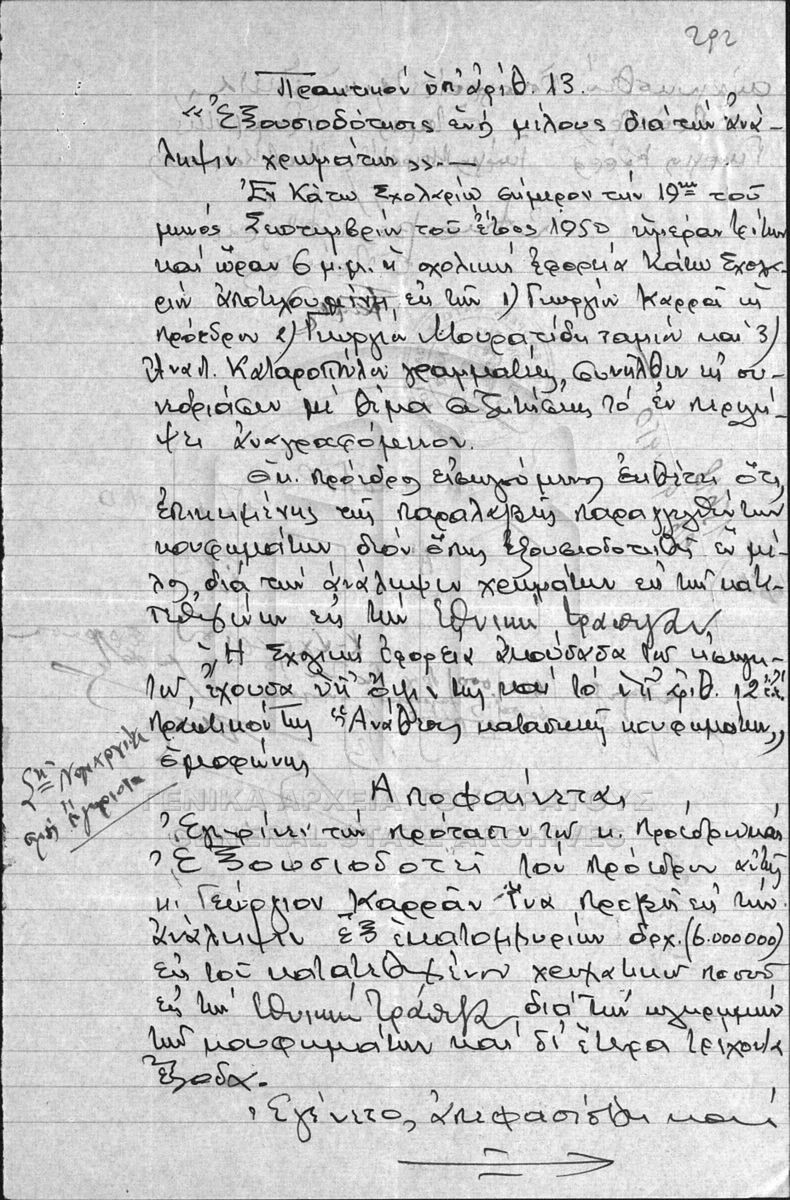 292
Πρακτικόν ὑπ' ἀριθ 13.
"Ἐξουσιοδότησις ἑνός μέλους διά τήν ἀνά-
ληψιν χρημάτων".—
Ἐν Κάτω Σχολαρίῳ σήμερον τήν 19ην τοῦ
μηνός Σεπτεμβρίου τοῦ ἔτους 1950 ἡμέραν τρίτην
καί ὥραν 6 μ.μ. ἡ σχολική ἐφορεία Κάτω Σχολα-
ρίου ἀποτελουμένη ἐκ τῶν 1) Γεωργίου Καρρᾶ ὡς
πρόεδρου 2) Γεωργίου Μουρατίδη ταμίου καί 3)
Ἀναπ. γραμματέως, συνῆλθεν εἰς συ-
νεδρίασιν μέ θέμα συζητήσεως τό ἐν περιλή-
ψει ἀναγραφόμενον.
Ὁ κ. πρόεδρος εἰσηγούμενος ἐκθέτει ὅτι,
ἐπικειμένης τῆς παραλαβῆς παραγγελθέντων
κουφωμάτων δέον ὅπως ἐξουσιοδοτηθῇ ἕν μέ-
λος διά τήν ἀνάληψιν χρημάτων ἐκ τῶν κατα-
τεθειμένων εἰς τήν Ἐθνικήν Τράπεζαν
Ἡ Σχολική Ἐφορεία ἀκούσασα τῶν
ἔχουσα ὑπ' ὄψιν της καί τό ὑπ' ἀριθ. 12
πρακτικόν της "Ἀνάθεσις κατασκευῆς κουφωμάτων"
ὁμοφώνως
Ἀποφαίνεται
Ἐγκρίνει τήν πρότασιν τοῦ κ. Προέδρου καί
Ἐξουσιοδοτεῖ τόν πρόεδρον αὐτῆς
κ. Γεώργιον Καρρᾶν ἵνα προβῇ εἰς τήν
ἀνάληψιν ἕξ ἑκατομμυρίων δρχ. (6.000.000)
ἐκ τοῦ κατατεθειμένου χρηματικοῦ ποσοῦ
εἰς τήν Ἐθνικήν Τράπεζαν διά τήν πληρωμήν
τῶν κουφωμάτων καί δι' ἕτερα τρέχοντα
ἔξοδα.
Ἐγένετο, ἀπεφασίσθη καί